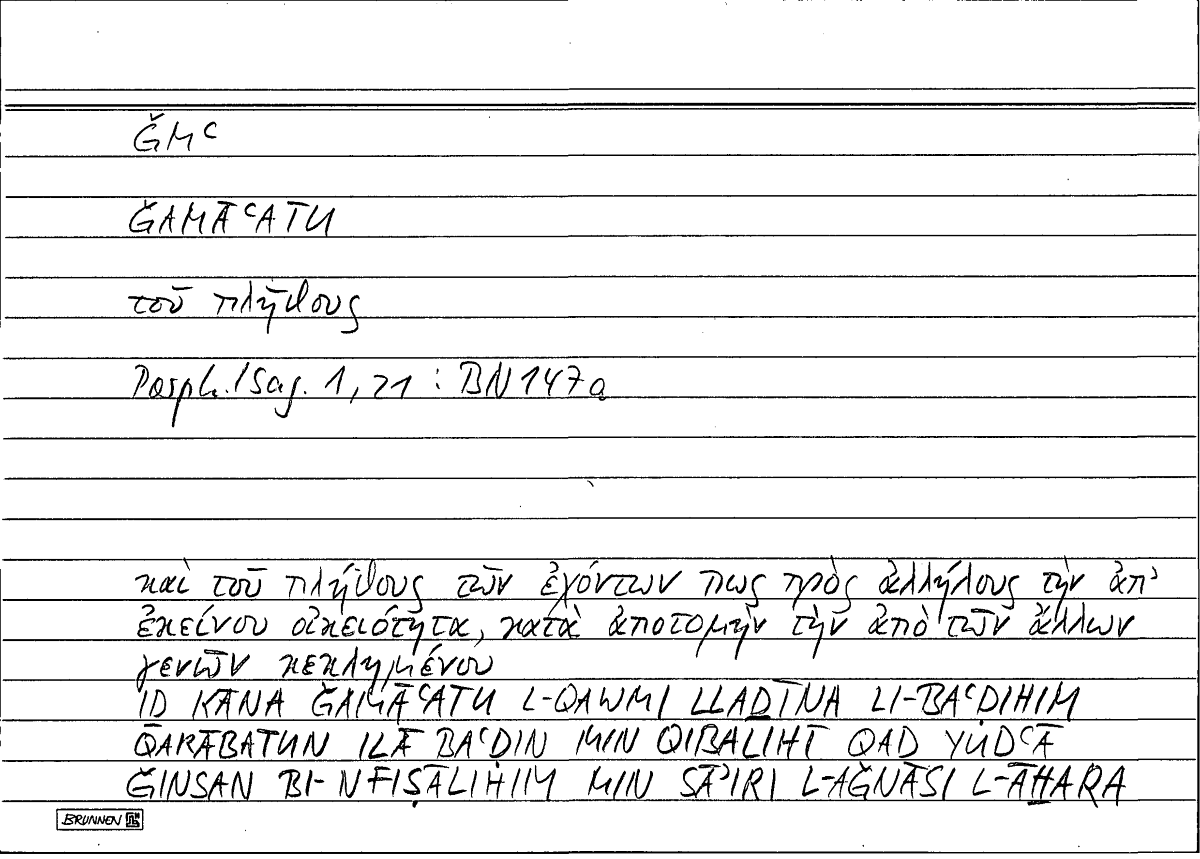 ǦMʿ
ǦAMĀʿATU
τοῦ πλήθους
Porph./Isag. 1, 21 : BN 147a
καὶ τοῦ πλήθους τῶν ἐχόντων πως πρὸς ἀλλήλους τὴν ἀπ'
ἐκείνου οἰκειότητα, κατὰ ἀποτομὴν τὴν ἀπὸ τῶν ἄλλων
γενῶν κεκλημένου
IḎ KĀNA ǦAMĀʿATU L-QAWMI LLAḎĪNA LI-BAʿḌIHIM
QARĀBATUN ILĀ BAʿḌIN MIN QIBALIHĪ QAD YUDʿĀ
ǦINSAN BI-NFIṢĀLIHIM MIN SĀʾIRI L-AǦNĀSI L-ĀḪARA
BRUNNEN